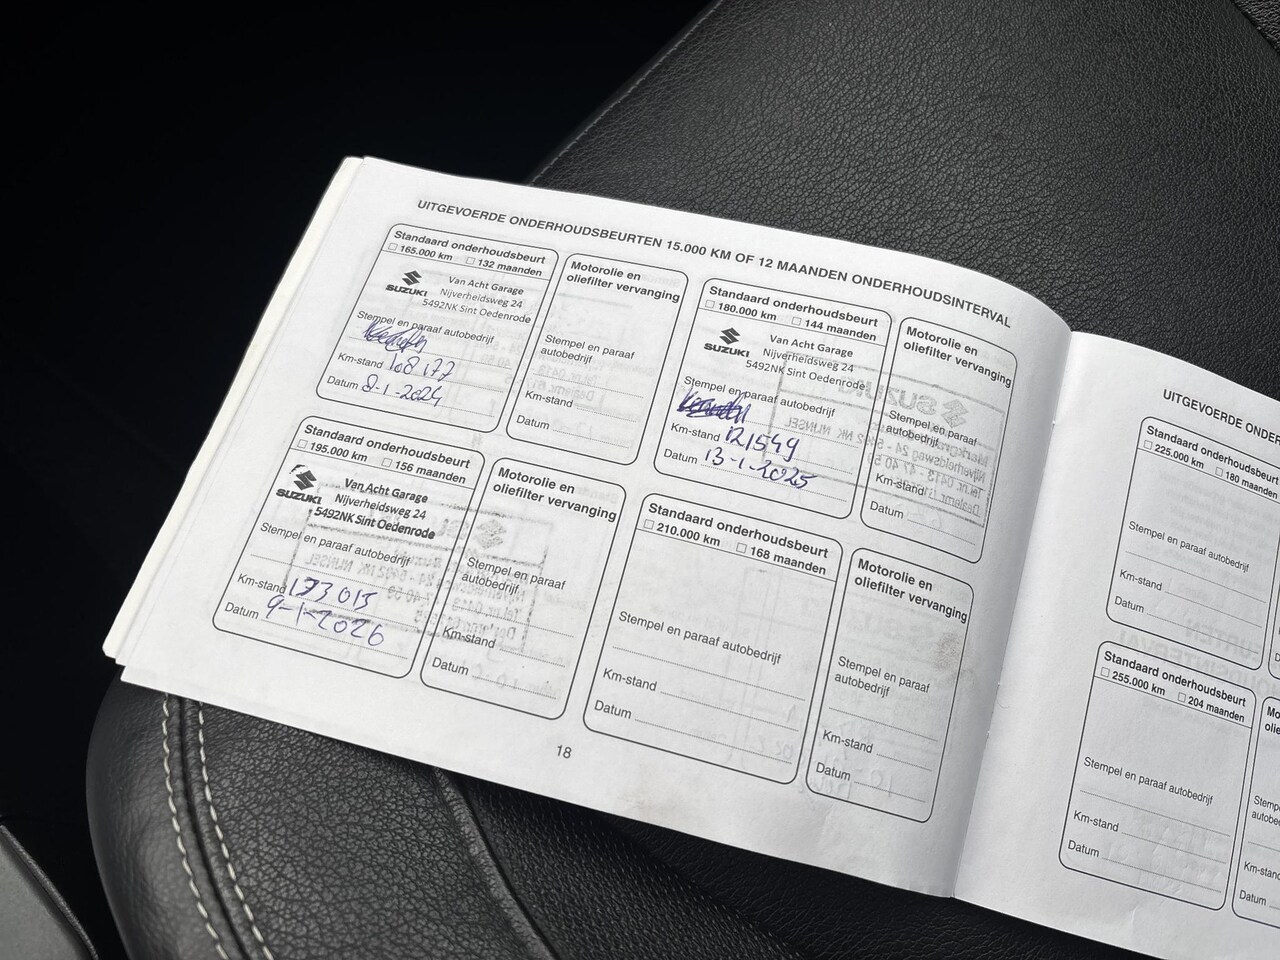 UITGEVOERDE ONDERHOUDSBEURTEN 15.000 KM OF 12 MAANDEN ONDERHOUDSINTERVAL
Standaard onderhoudsbeurt
165.000 km 132 maanden
SUZUKI
Van Acht Garage
Nijverheidsweg 24
5492NK Sint Oedenrode
Stempel en paraaf autobedrijf
Km-stand 108177
Datum 8-1-2024
Motorolie en
oliefilter vervanging
Stempel en paraaf
autobedrijf
Km-stand
Datum
Standaard onderhoudsbeurt
180.000 km 144 maanden
SUZUKI
Van Acht Garage
Nijverheidsweg 24
5492NK Sint Oedenrode
Stempel en paraaf autobedrijf
Km-stand 121549
Datum 13-1-2025
Motorolie en
oliefilter vervanging
Stempel en paraaf
autobedrijf
Km-stand
Datum
Standaard onderhoudsbeurt
195.000 km 156 maanden
SUZUKI
Van Acht Garage
Nijverheidsweg 24
5492NK Sint Oedenrode
Stempel en paraaf autobedrijf
Km-stand 133015
Datum 9-1-2026
Motorolie en
oliefilter vervanging
Stempel en paraaf
autobedrijf
Km-stand
Datum
Standaard onderhoudsbeurt
210.000 km 168 maanden
Stempel en paraaf autobedrijf
Km-stand
Datum
Motorolie en
oliefilter vervanging
Stempel en paraaf
autobedrijf
Km-stand
Datum
18
UITGEVOERDE ONDER
Standaard onderhoudsbeurt
225.000 km 180 maanden
Stempel en paraaf autobedrijf
Km-stand
Datum
Standaard onderhoudsbeurt
255.000 km 204 maanden
Stempel en paraaf autobedrijf
Km-stand
Datum
Mo
olie
Stemp
autobe
Km-st
Datum